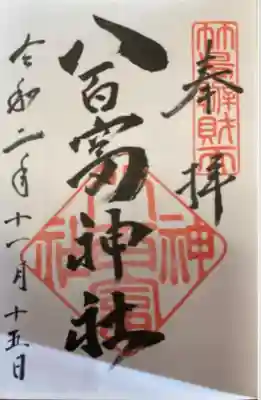 奉拝
竹島弁財天
八百富神社
八百富神社
令和二年十一月十五日